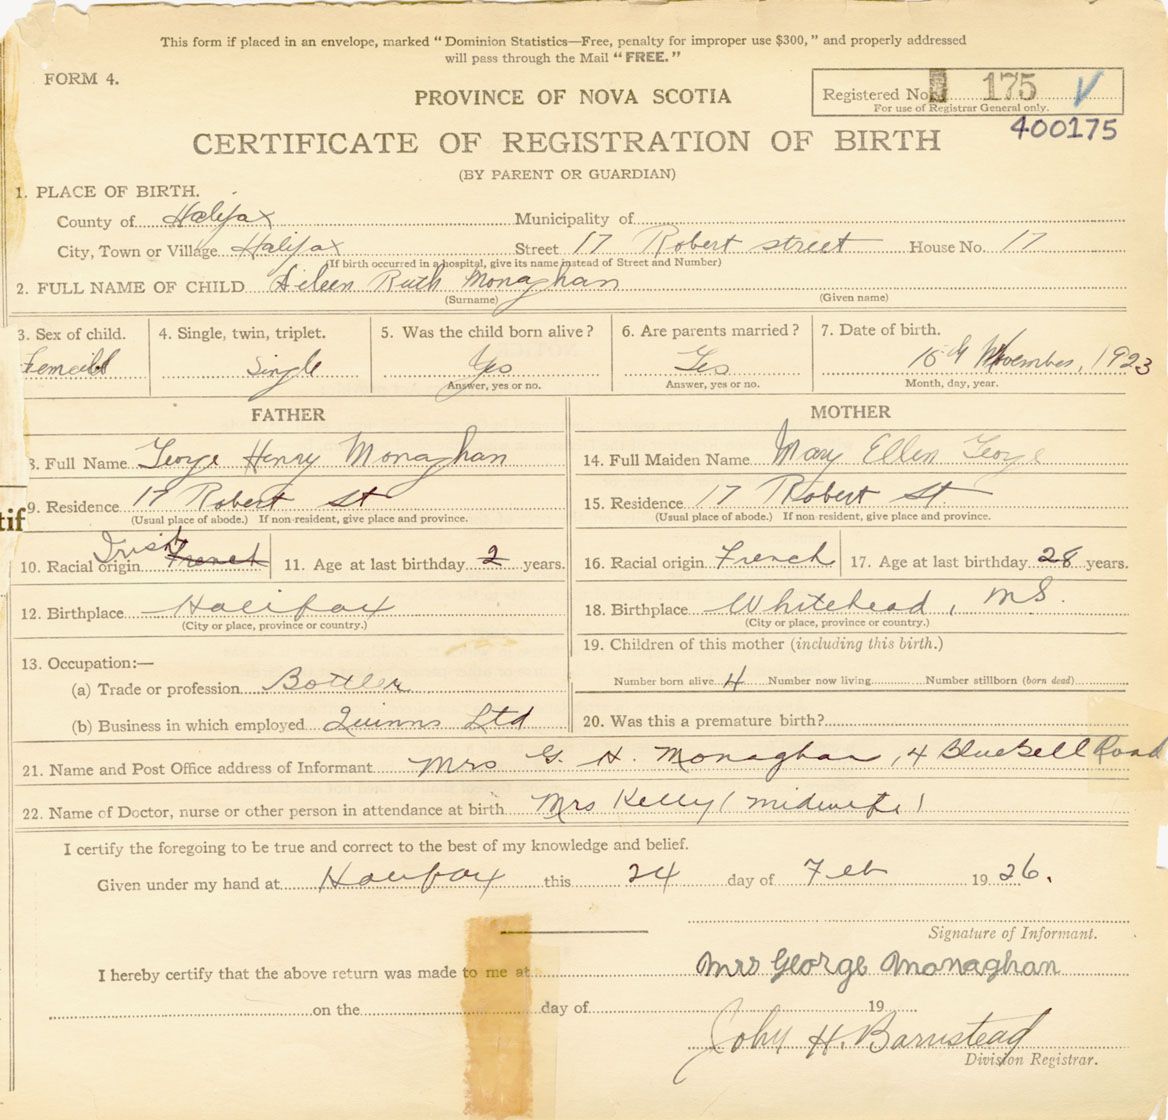 This form if placed in an envelope, marked “Dominion Statistics—Free, penalty for improper use $300,” and properly addressed
will pass through the Mail “FREE.”
FORM 4.
Registered No. 175
For use of Registrar General only.
400175
PROVINCE OF NOVA SCOTIA
CERTIFICATE OF REGISTRATION OF BIRTH
(BY PARENT OR GUARDIAN)
1. PLACE OF BIRTH.
County of Halifax Municipality of
City, Town or Village Halifax Street 17 Robert street House No. 17
(If birth occurred in a hospital, give its name instead of Street and Number)
2. FULL NAME OF CHILD Eileen Ruth Monaghan
(Surname) (Given name)
3. Sex of child. 4. Single, twin, triplet. 5. Was the child born alive? 6. Are parents married? 7. Date of birth.
Single Yes Yes November, 1923
Answer, yes or no. Answer, yes or no. Month, day, year.
FATHER MOTHER
8. Full Name George Henry Monaghan 14. Full Maiden Name Mary Ellen George
9. Residence 17 Robert St 15. Residence 17 Robert St.
(Usual place of abode.) If non-resident, give place and province. (Usual place of abode.) If non-resident, give place and province.
tif
10. Racial origin Irish French 11. Age at last birthday 2 years. 16. Racial origin French 17. Age at last birthday 28 years.
12. Birthplace Halifax 18. Birthplace Whitehead, NS.
(City or place, province or country.) (City or place, province or country.)
19. Children of this mother (including this birth.)
13. Occupation:—
(a) Trade or profession Bottler Number born alive 4 Number now living Number stillborn (born dead)
(b) Business in which employed Quinns Ltd 20. Was this a premature birth?
21. Name and Post Office address of Informant Mrs G. H. Monaghan, 4 Bluebell Road
22. Name of Doctor, nurse or other person in attendance at birth Mrs Kelly (midwife)
I certify the foregoing to be true and correct to the best of my knowledge and belief.
Given under my hand at Halifax this 24 day of Feb 1926.
Signature of Informant.
I hereby certify that the above return was made to me at Mrs George Monaghan
on the day of 19
John H. Barnstead
Division Registrar.